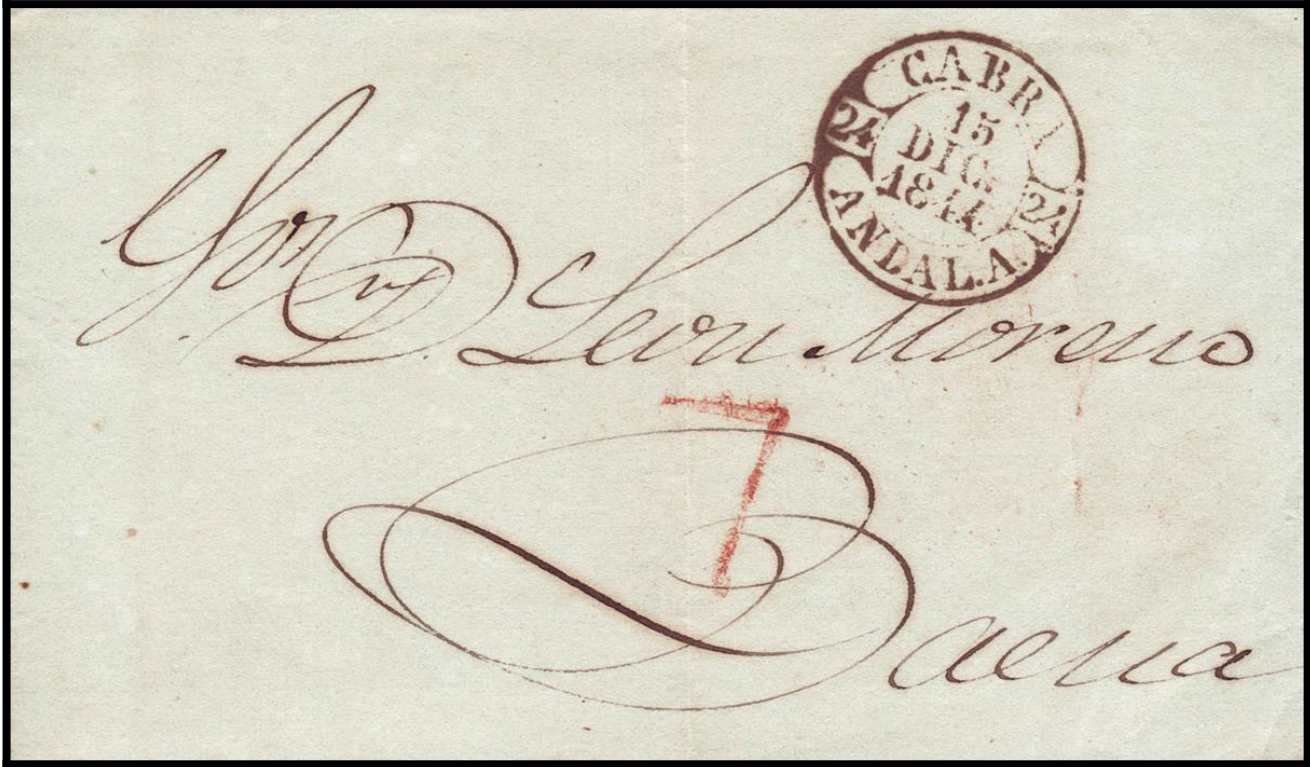 CABRA
24 24
15
DIC.
1844
ANDAL.A.
Sor. Dn. D. Leon Moreno
7
Baena